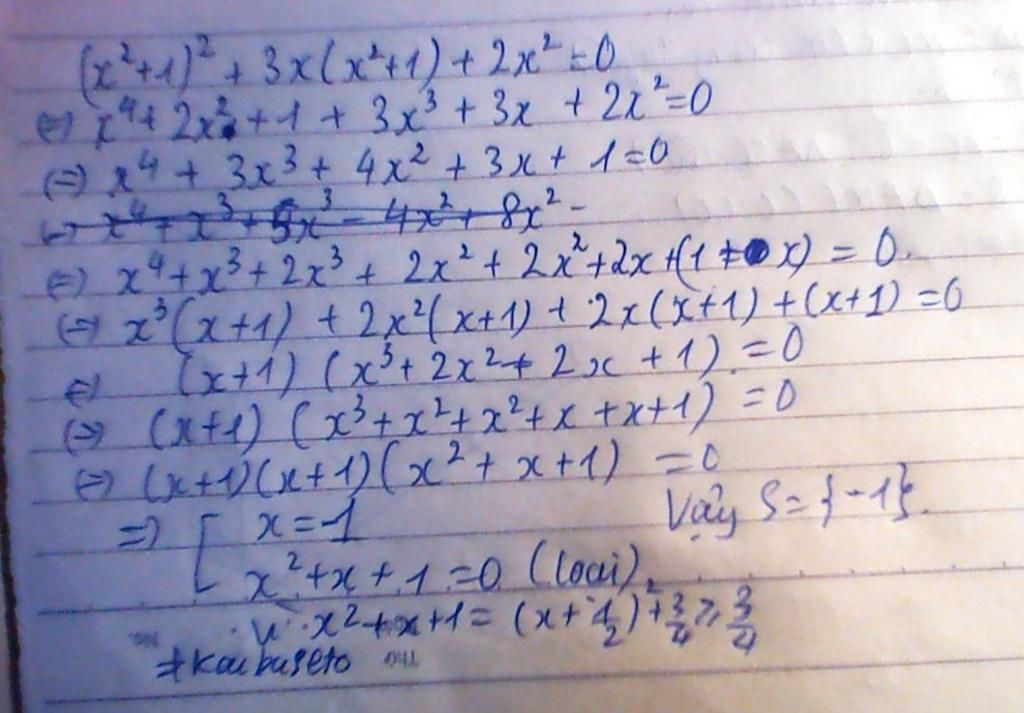 (x²+1)² + 3x(x²+1) + 2x² = 0
⇔ x⁴ + 2x² + 1 + 3x³ + 3x + 2x² = 0
⇔ x⁴ + 3x³ + 4x² + 3x + 1 = 0
⇔ x⁴ + x³ + 2x³ + 2x² + 2x² + 2x + (1 + x) = 0.
⇔ x³(x+1) + 2x²(x+1) + 2x(x+1) + (x+1) = 0
⇔ (x+1)(x³ + 2x² + 2x + 1) = 0
⇔ (x+1)(x³ + x² + x² + x + x + 1) = 0
⇔ (x+1)(x+1)(x² + x + 1) = 0
⇒ [ x = -1 Vậy S = {-1}.
x² + x + 1 = 0 (loại)
Vì x² + x + 1 = (x + 1/2)² + 3/4 ≥ 3/4
#Kaibaseto